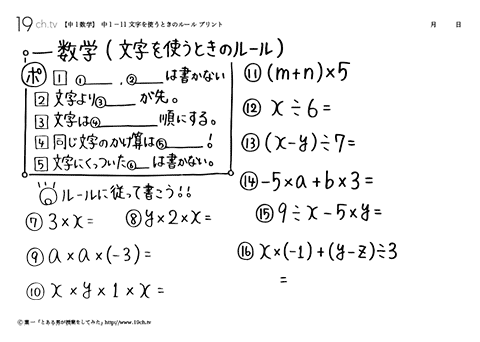 19 ch.tv 【中1数学】 中1-11 文字を使うときのルール プリント 月 日
数学(文字を使うときのルール)
ポ 1 ①____, ②____は書かない
2 文字より③____が先。
3 文字は④____順にする。
4 同じ文字のかけ算は⑤____!
5 文字にくっついた⑥__は書かない。
ルールに従って書こう!!
⑦ 3×x=
⑧ y×2×x=
⑨ a×a×(-3)=
⑩ x×y×1×x=
⑪ (m+n)×5
⑫ x÷6=
⑬ (x-y)÷7=
⑭ -5×a+b×3=
⑮ 9÷x-5×y=
⑯ x×(-1)+(y-z)÷3
=
© 葉一「とある男が授業をしてみた」http://www.19ch.tv